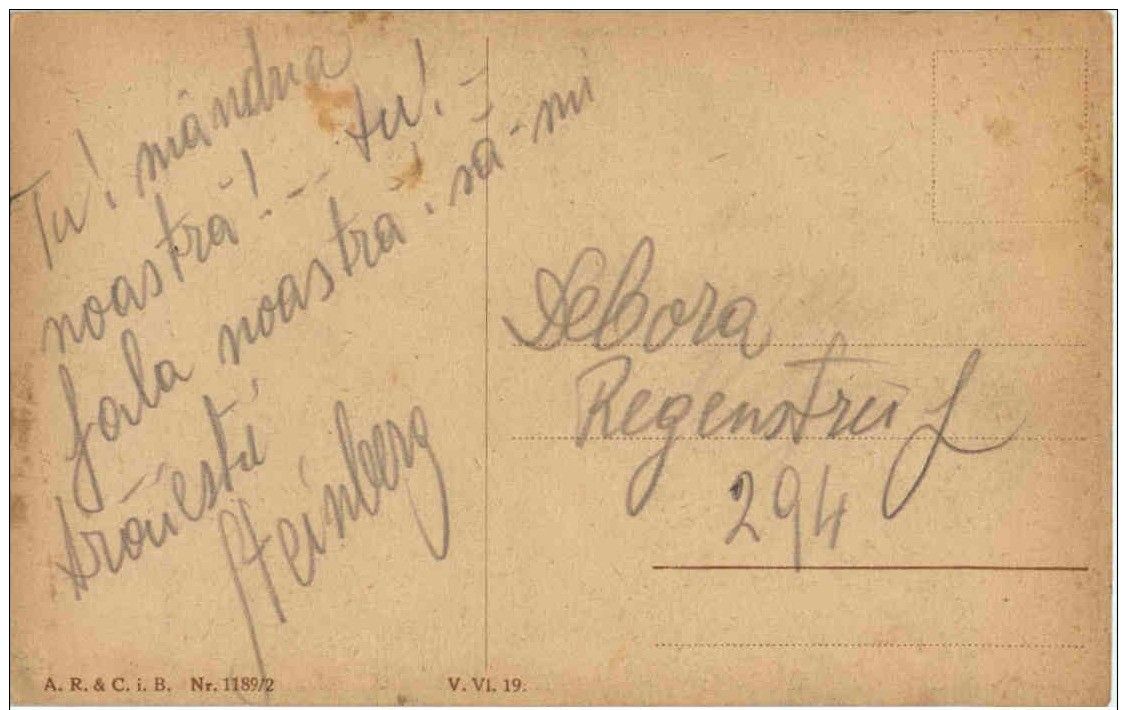 Tu! mândra
noastră! -- tu! -
fala noastră. să-mi
trăiești
Steinberg
Debora
Regenstreif
294
A. R. & C. i. B. Nr. 1189/2
V. VI. 19.